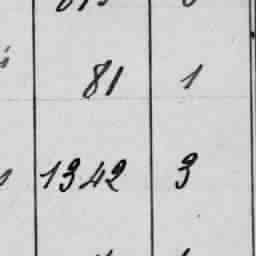 81 1
1342 3